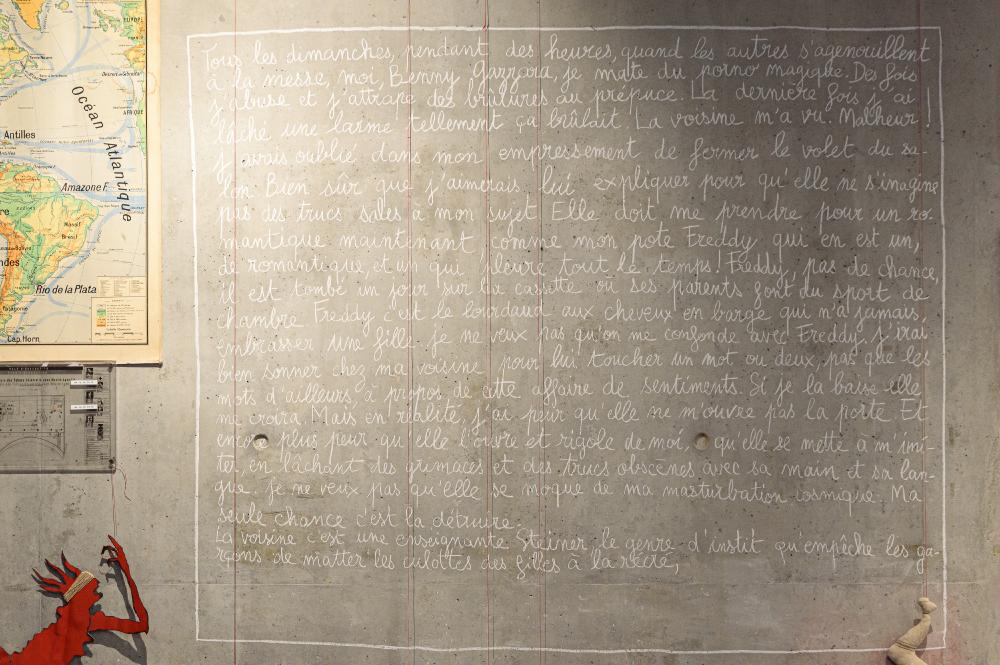 Océan Atlantique
Antilles
Amazone F.
Rio de la Plata
Cap Horn
AFRIQUE
Massif
Brésil
Patagonie
Tous les dimanches, pendant des heures, quand les autres s'agenouillent
à la messe, moi, Benny Gazzara, je mate du porno magique. Des fois
j'abuse et j'attrape des brûlures au prépuce. La dernière fois j'ai
lâché une larme tellement ça brûlait. La voisine m'a vu. Malheur !
J'avais oublié dans mon empressement de fermer le volet du sa-
lon. Bien sûr que j'aimerais lui expliquer pour qu'elle ne s'imagine
pas des trucs sales à mon sujet. Elle doit me prendre pour un ro-
mantique maintenant comme mon pote Freddy qui en est un,
de romantique, et un qui pleure tout le temps ! Freddy, pas de chance,
il est tombé un jour sur la cassette où ses parents font du sport de
chambre. Freddy c'est le lourdaud aux cheveux en barge qui n'a jamais,
embrasser une fille. je ne veux pas qu'on me confonde avec Freddy. J'irai
bien sonner chez ma voisine pour lui toucher un mot ou deux, pas que les
mots d'ailleurs, à propos de cette affaire de sentiments. Si je la baise elle
me croira. Mais en réalité, j'ai peur qu'elle ne m'ouvre pas la porte. Et
encore plus peur qu'elle l'ouvre et rigole de moi, qu'elle se mette à m'imi-
ter, en lâchant des grimaces et des trucs obscènes avec sa main et sa lan-
gue. je ne veux pas qu'elle se moque de ma masturbation cosmique. Ma
seule chance c'est la détruire.
La voisine c'est une enseignante Steiner, le genre d'instit qu'empêche les ga-
rçons de matter les culottes des filles à la récré,